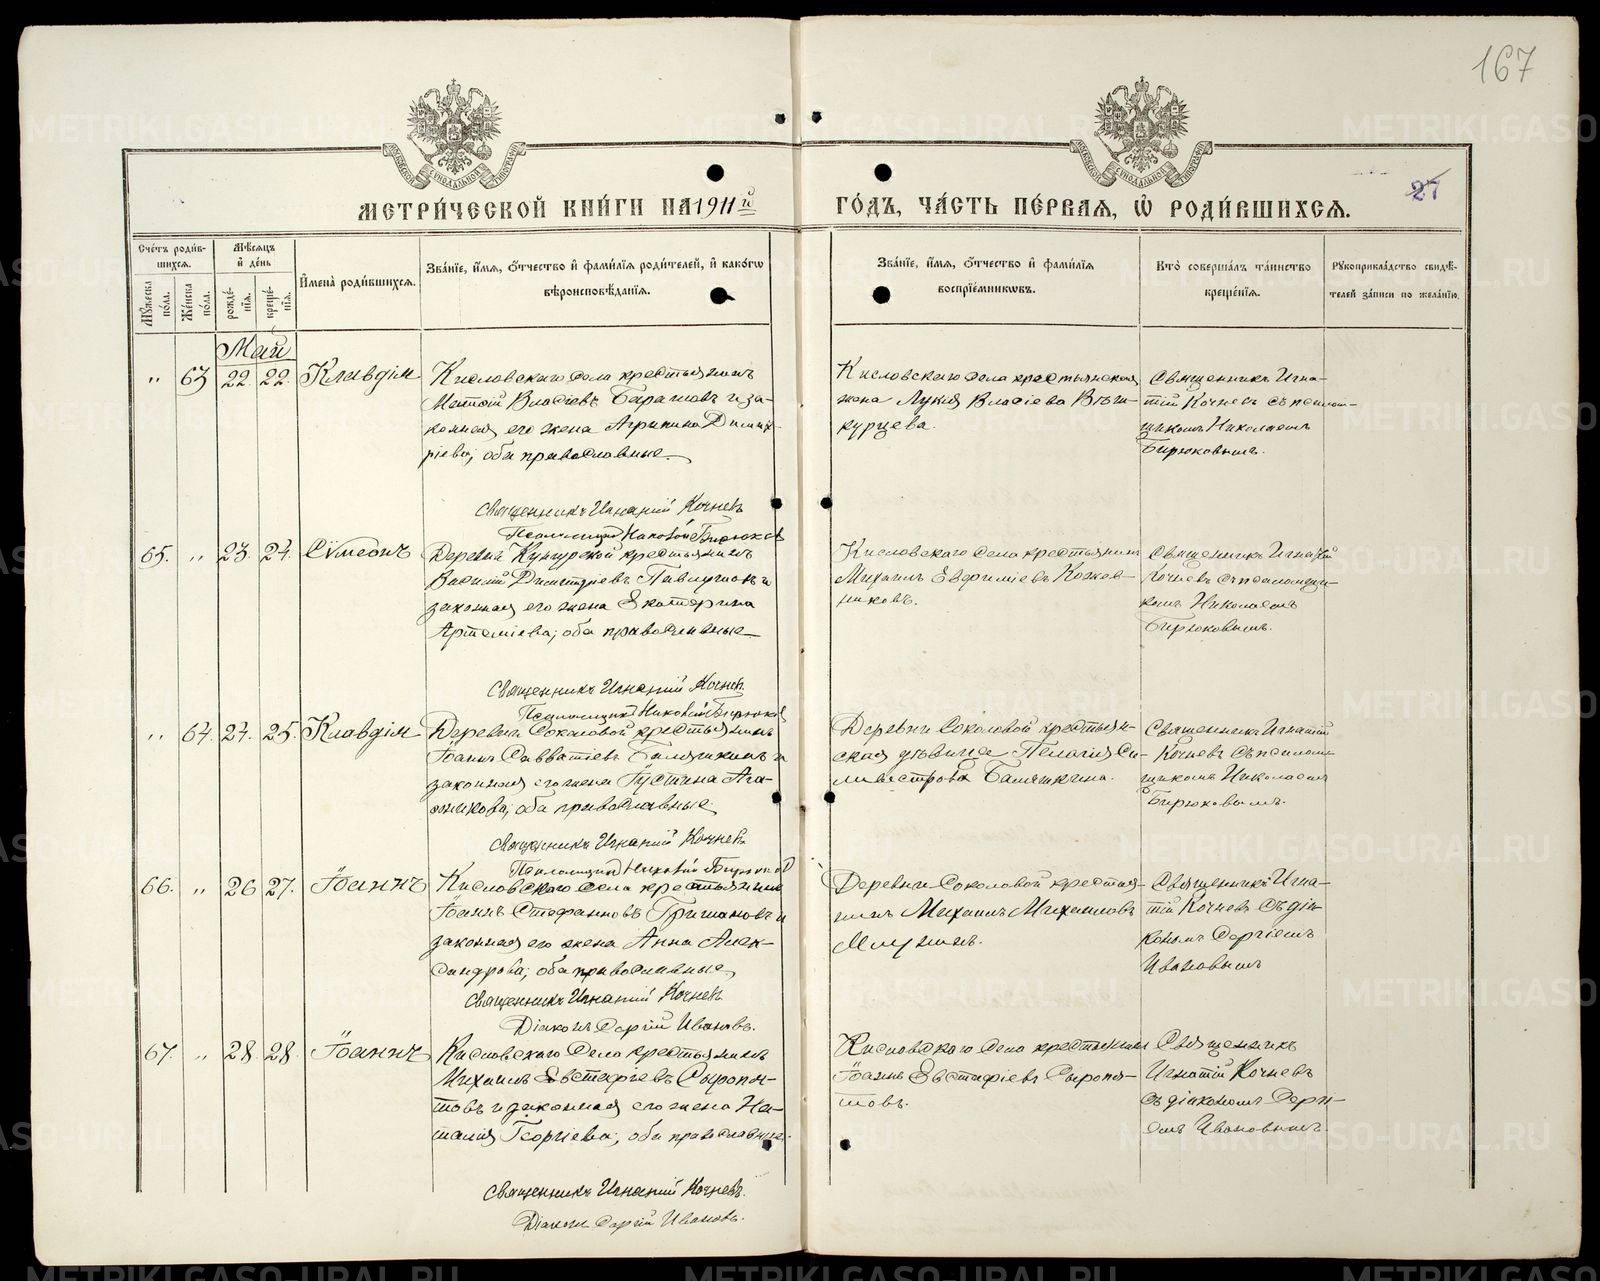 167
27
МЕТРИ́ЧЕСКОЙ КНИ́ГИ НА 1911й
ГО́ДЪ, ЧА́СТЬ ПЕ́РВАЯ, Ѡ РОДИ́ВШИХСЯ.
Сче́тъ роди́в-
шихся.
Му́жеска по́ла.
Же́нска по́ла.
Мѣ́сяцъ
и҆ де́нь
рожде́нїя.
креще́нїя.
И҆мена̀ роди́вшихся.
Зва́нїе, и҆́мя, ѻ҆́тчество и҆ фами́лїя роди́телей, и҆ како́гѡ
вѣроисповѣ́данїя.
Зва́нїе, и҆́мя, ѻ҆́тчество и҆ фами́лїя
воспрїе́мникѡвъ.
Кто̀ соверша́лъ та́инство
креще́нїя.
Рꙋкоприкла́дство свидѣ́-
телей за́писи по жела́нїю.
Май
„ 63 22. 22. Клавдія
Кисловскаго села крестьянинъ
Власіевъ и за-
конная его жена Агрипина Димит-
ріева; оба православные.
Священникъ Игнатій Кочневъ
Псаломщикъ Николай Бирюковъ
Кисловскаго села крестьянская
жена Лукія Власіева
курцева.
Священникъ Игна-
тій Кочневъ съ псалом-
щикомъ Николаемъ
Бирюковымъ.
65. „ 23. 24. Сѵмеонъ
Деревни Кунгурской крестьянинъ
Василій Димитріевъ и
законная его жена Екатерина
Артеміева; оба православные
Священникъ Игнатій Кочнев.
Псаломщикъ Николай Бирюков
Кисловскаго села крестьянинъ
Михаилъ Евфиміевъ Кожев-
никовъ.
Священникъ Игнатій
Кочневъ съ псаломщи-
комъ Николаемъ
Бирюковымъ.
„ 64. 24. 25. Клавдія
Деревни Соколовой крестьянинъ
Іоаннъ Савватіевъ Балякинъ и
законная его жена Іустина Ага-
оба православные
Священникъ Игнатій Кочнев.
Псаломщикъ Николай Бирюков
Деревни Соколовой крестьян-
ская дѣвица Пелагія Си-
львестрова
Священникъ Игнатій
Кочневъ съ псалом-
щикомъ Николаемъ
Бирюковымъ.
66. „ 26 27. Іоаннъ
Кисловскаго села крестьянинъ
Іоаннъ Стефановъ и
законная его жена Анна Алек-
сандрова; оба православные
Священникъ Игнатій Кочневъ
Діаконъ Сергій Ивановъ.
Деревни Соколовой крестья-
нинъ Михаилъ Михаиловъ
Священникъ Игна-
тій Кочневъ съ діа-
кономъ Сергіемъ
Ивановымъ
67. „ 28 28. Іоаннъ
Кисловскаго села крестьянинъ
Михаилъ Евстафіевъ Сыропя-
товъ и законная его жена На-
талія Георгіева; оба православные.
Священникъ Игнатій Кочневъ.
Діаконъ Сергій Ивановъ.
Кисловскаго села крестьянинъ
Іоаннъ Евстафіевъ Сыропя-
товъ.
Священникъ
Игнатій Кочневъ
съ діакономъ Серги-
емъ Ивановымъ.
METRIKI.GASO-URAL.RU